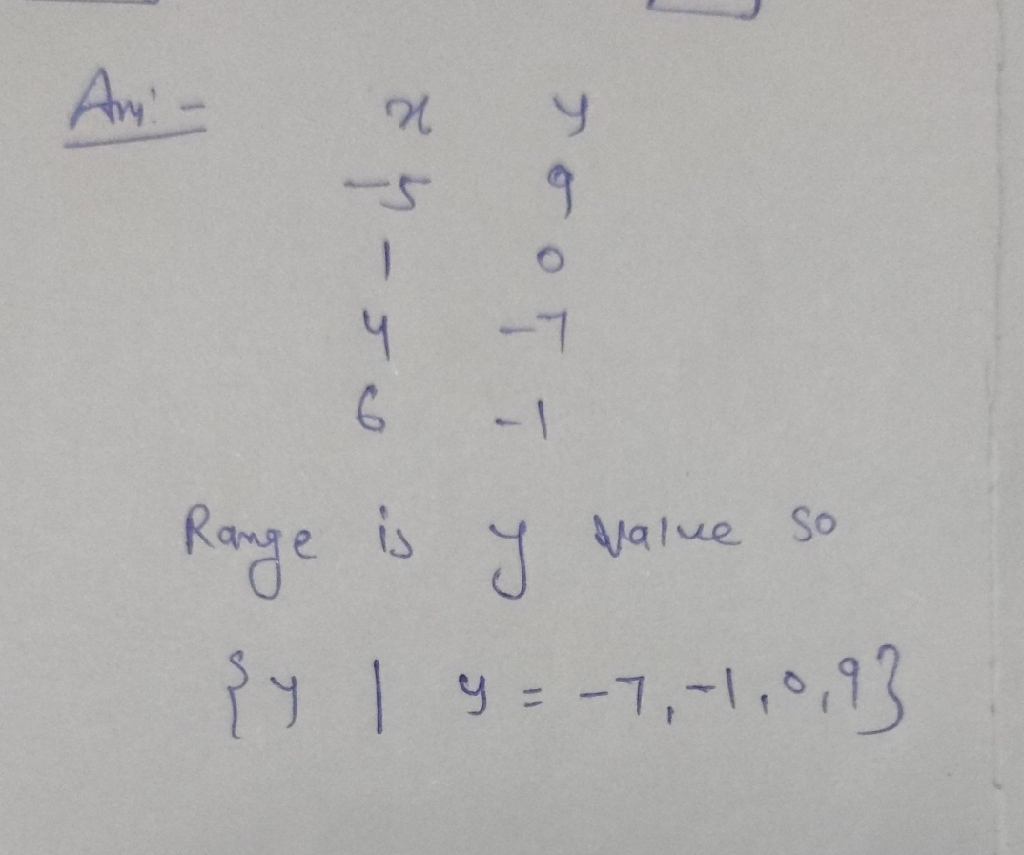 Ans:-    x    y
-5    9
1    0
4    -7
6    -1
Range is y value so
{y | y = -7, -1, 0, 9}